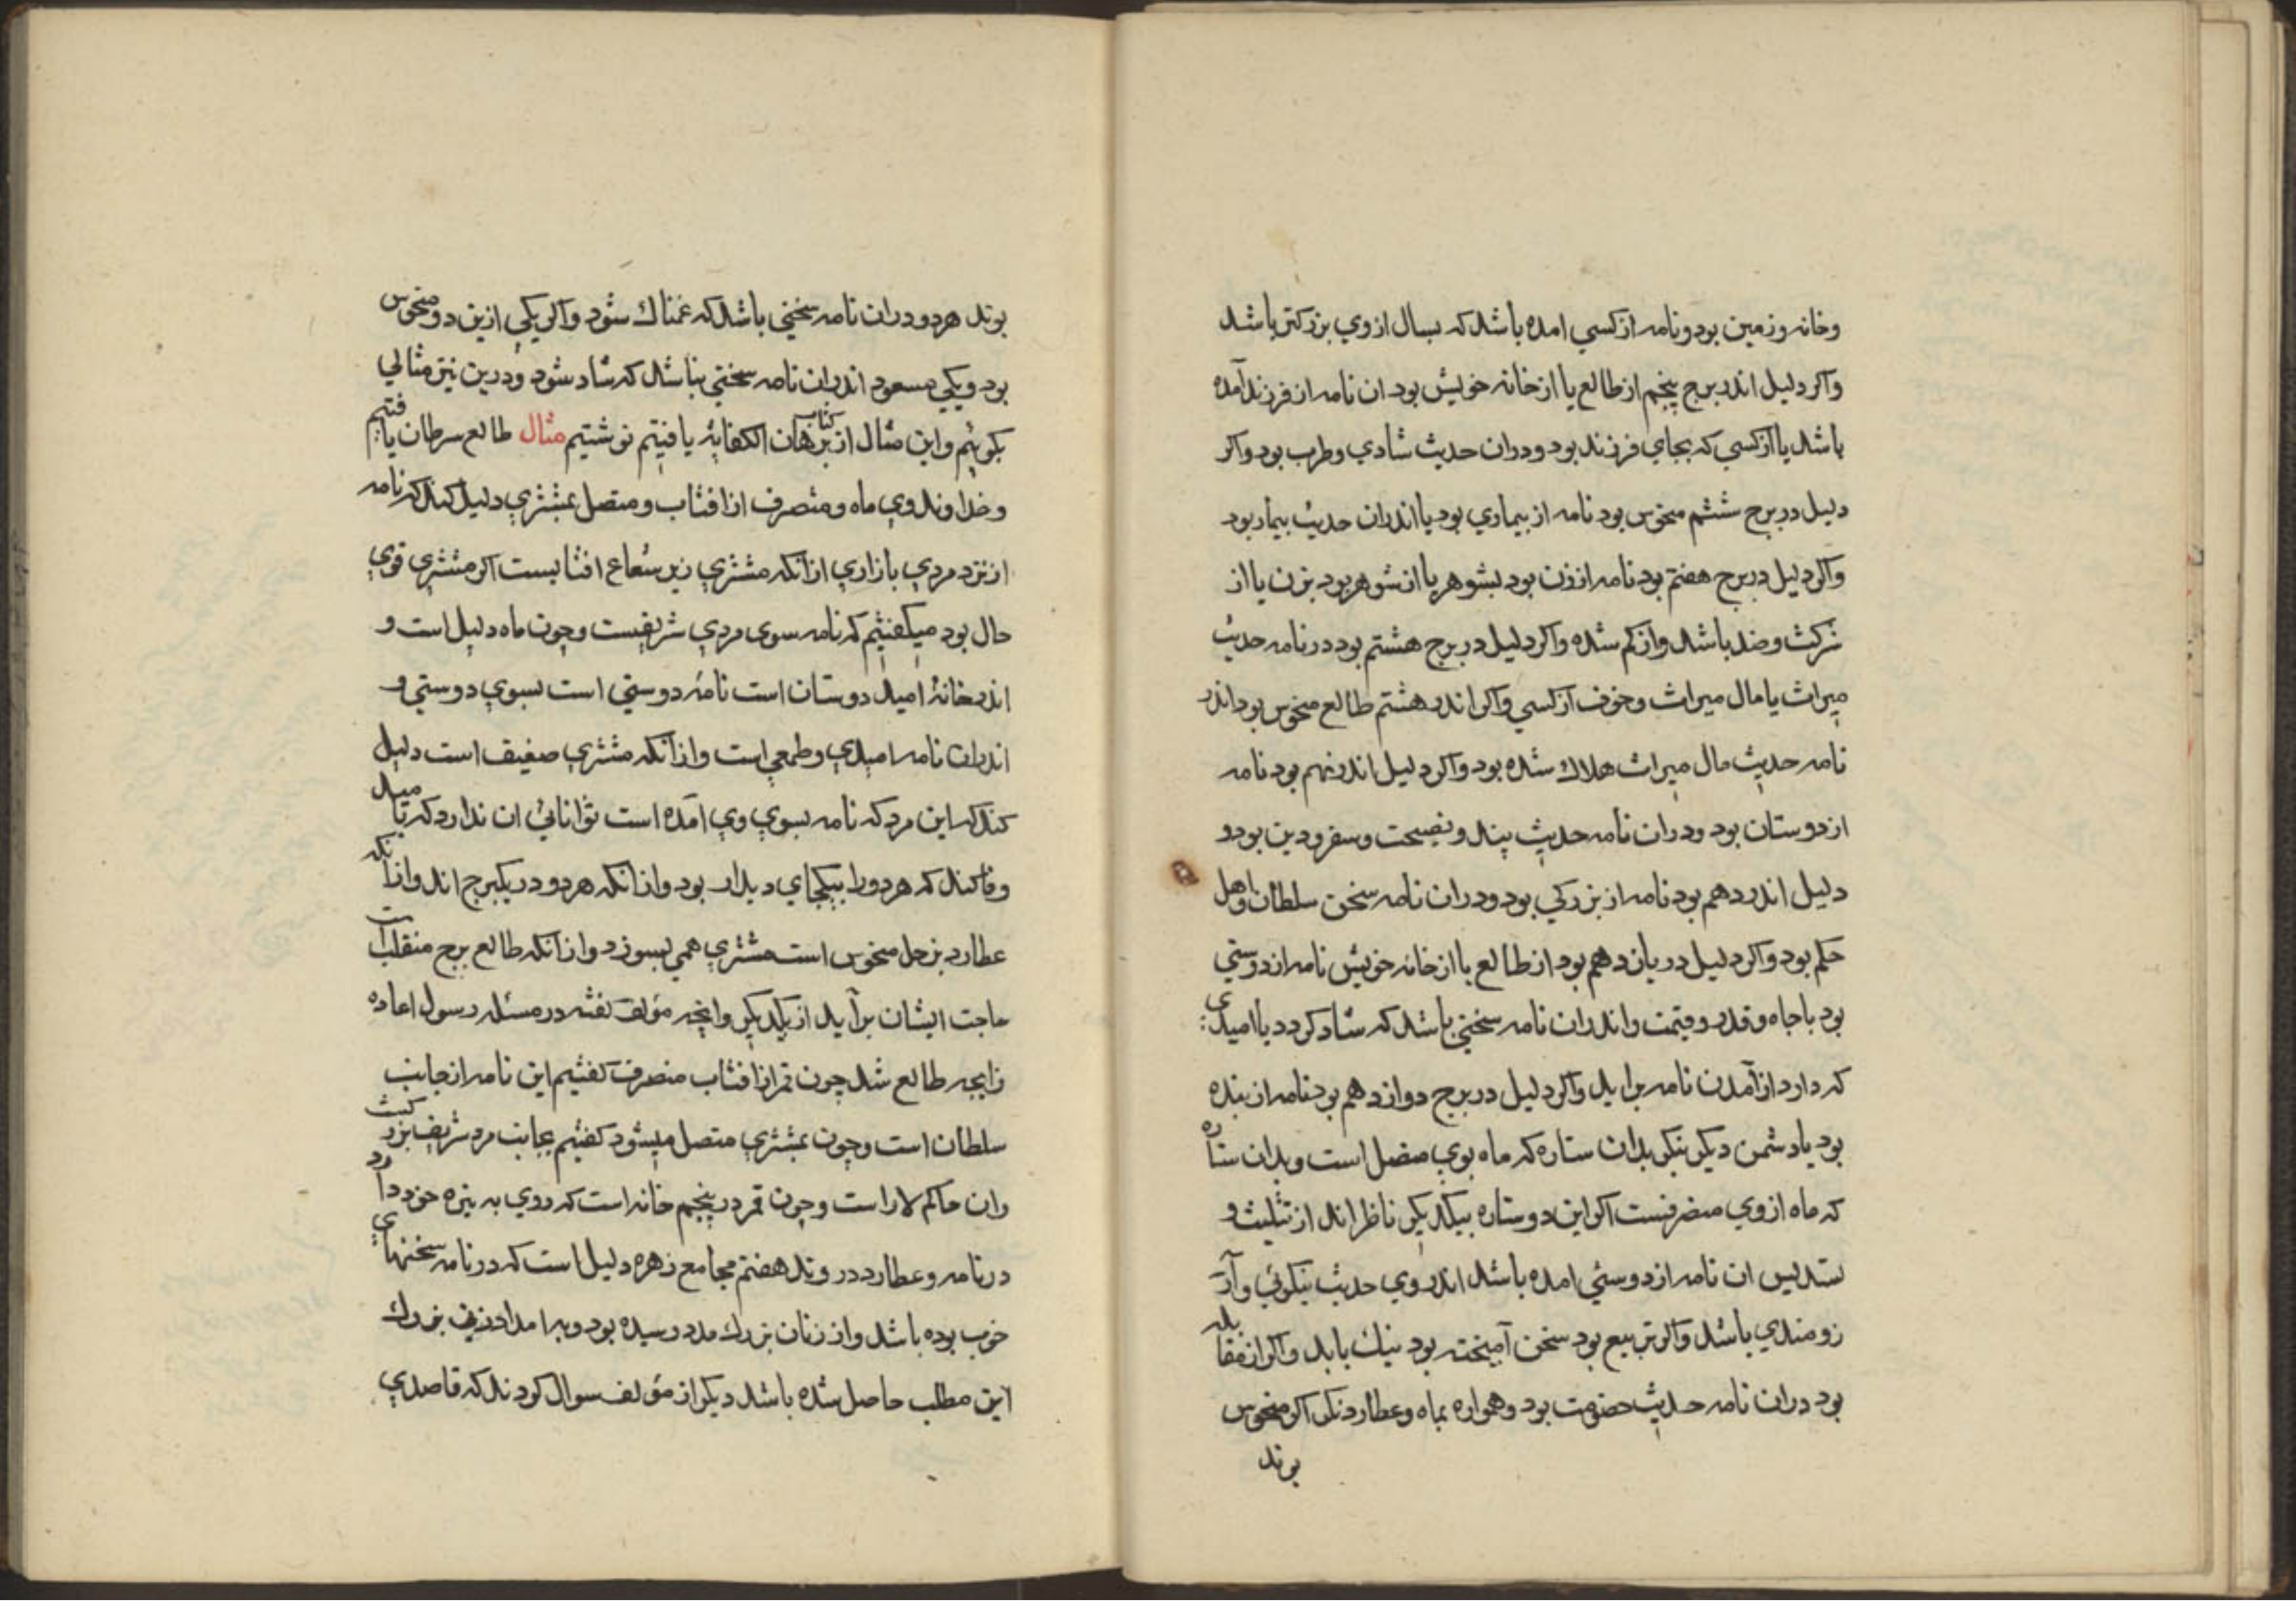 وخانه وزمین بود ونامه از کسی امده باشد که بسال از وی بزرکتر باشد
واکر دلیل اندر برج پنجم از طالع یا از خانه خویش بود ان نامه از فرزند آمده
باشد یا از کسی که بجای فرزند بود ودران حدیث شادی وطرب بود واکر
دلیل در برج ششم منحوس بود نامه از بیماری بود یا اندران حدیث بیمار بود
واکر دلیل در برج هفتم بود نامه از زن بود بشوهر یا از شوهر بود بزن یا از
شرکت وضد باشد واز کم شده واکر دلیل در برج هشتم بود در نامه حدیث
میراث یا مال میراث وخوف از کسی واکر اندر هشتم طالع منحوس بود اندر
نامه حدیث مال میراث هلاك شده بود واکر دلیل اندر نهم بود نامه
از دوستان بود ودران نامه حدیث پند ونصیحت وسفر ودین بود و
دلیل اندر دهم بود نامه از بزرکی بود ودران نامه سخن سلطان واهل
حکم بود واکر دلیل در یازدهم بود از طالع یا از خانه خویش نامه از دوستی
بود باجاه وقدر وقیمت واندران نامه سخنی باشد که شاد کردد یا امیدی
که دارد از آمدن نامه براید واکر دلیل در برج دوازدهم بود نامه از بنده
بود یا دشمن دیکر بنکر بدان ستاره که ماه بوی متصل است وبدان ستاره
که ماه از وی منصرفست اکر این دو ستاره بیکدیکر ناظر اند از تثلیث و
تسدیس ان نامه از دوستی امده باشد اندر وی حدیث نیکوئی وآر
زومندی باشد واکر تربیع بود سخن آمیخته بود نیك بابد واکر از مقابله
بود دران نامه حدیث خصومت بود وهمواره بماه وعطارد نکر اکر منحوس
بوند
بوند هردو دران نامه سخنی باشد که غمناك شود واکر یکی ازین دو منحوس
بود ویکی مسعود اندران نامه سخنی بباشد که شاد شود ودرین نیز مثالی
بکوئیم واین مثال از کتاب برهان الکفایه یافتیم نوشتیم مثال طالع سرطان یافتیم
وخداوند وی ماه ومنصرف از افتاب ومتصل بمشتری دلیل کند که نامه
از نزد مردی بازاری ازانکه مشتری زیر شعاع افتابست اکر مشتری قوی
حال بود میکفتیم که نامه سوی مردی شریفست وچون ماه دلیل است و
اندر خانهٔ امید دوستان است نامهٔ دوستی است بسوی دوستی و
اندران نامه امیدی وطمعی است وازانکه مشتری ضعیف است دلیل
کند که این مرد که نامه بسوی وی آمده است توانائی ان ندارد که تا امید
وفا کند که هردورا بیکجای دیدار بود وازانکه هردو در یکبرج اند وازانکه
عطارد بزحل منحوس است مشتری همی بسوزد وازانکه طالع برج منقلب است
حاجت ایشان برآید از یکدیکر وانچه مؤلف کفته در مسئله رسول اعاده
زایجه طالع شد چون قمر از افتاب منصرف کفتیم این نامه از جانب
سلطان است وچون بمشتری متصل میشود کفتیم بجانب مرد شریف بزرکیست
وان حاکم لار است وچون قمر در پنجم خانه است که روی به تیره خود دارد
در نامه وعطارد در وتد هفتم مجامع زهره دلیل است که در نامه سخنهای
خوب بوده باشد واز زنان بزرك مدد رسیده بود وبه امداد زنی بزرك
این مطلب حاصل شده باشد دیکر از مؤلف سوال کردند که قاصدی